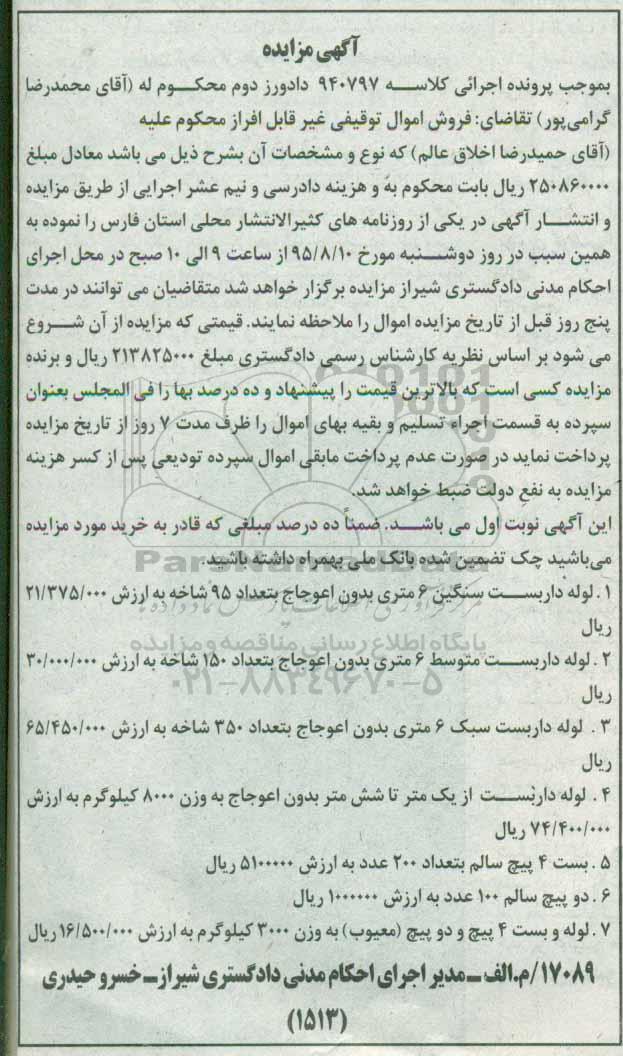 آگهی مزایده
بموجب پرونده اجرائی کلاسه ۹۴۰۷۹۷ دادورز دوم محکوم له (آقای محمدرضا
گرامی‌پور) تقاضای: فروش اموال توقیفی غیر قابل افراز محکوم علیه
(آقای حمیدرضا اخلاق عالم) که نوع و مشخصات آن بشرح ذیل می باشد معادل مبلغ
۲۵۰۸۶۰۰۰۰ ریال بابت محکوم به و هزینه دادرسی و نیم عشر اجرایی از طریق مزایده
و انتشار آگهی در یکی از روزنامه های کثیرالانتشار محلی استان فارس را نموده به
همین سبب در روز دوشنبه مورخ ۹۵/۸/۱۰ از ساعت ۹ الی ۱۰ صبح در محل اجرای
احکام مدنی دادگستری شیراز مزایده برگزار خواهد شد متقاضیان می توانند در مدت
پنج روز قبل از تاریخ مزایده اموال را ملاحظه نمایند. قیمتی که مزایده از آن شروع
می شود بر اساس نظریه کارشناس رسمی دادگستری مبلغ ۲۱۳۸۲۵۰۰۰ ریال و برنده
مزایده کسی است که بالاترین قیمت را پیشنهاد و ده درصد بها را فی المجلس بعنوان
سپرده به قسمت اجراء تسلیم و بقیه بهای اموال را ظرف مدت ۷ روز از تاریخ مزایده
پرداخت نماید در صورت عدم پرداخت مابقی اموال سپرده تودیعی پس از کسر هزینه
مزایده به نفع دولت ضبط خواهد شد.
این آگهی نوبت اول می باشد. ضمناً ده درصد مبلغی که قادر به خرید مورد مزایده
می‌باشید چک تضمین شده بانک ملی بهمراه داشته باشید.
۱. لوله داربست سنگین ۶ متری بدون اعوجاج بتعداد ۹۵ شاخه به ارزش ۲۱/۳۷۵/۰۰۰
ریال
پایگاه اطلاع رسانی مناقصه و مزایده
۲. لوله داربست متوسط ۶ متری بدون اعوجاج بتعداد ۱۵۰ شاخه به ارزش ۳۰/۰۰۰/۰۰۰
ریال
۰۲۱-۸۸۳۴۹۶۷۰-۵
۳. لوله داربست سبک ۶ متری بدون اعوجاج بتعداد ۳۵۰ شاخه به ارزش ۶۵/۴۵۰/۰۰۰
ریال
۴. لوله داربست از یک متر تا شش متر بدون اعوجاج به وزن ۸۰۰۰ کیلوگرم به ارزش
۷۴/۴۰۰/۰۰۰ ریال
۵. بست ۴ پیچ سالم بتعداد ۲۰۰ عدد به ارزش ۵۱۰۰۰۰۰ ریال
۶. دو پیچ سالم ۱۰۰ عدد به ارزش ۱۰۰۰۰۰۰ ریال
۷. لوله و بست ۴ پیچ و دو پیچ (معیوب) به وزن ۳۰۰۰ کیلوگرم به ارزش ۱۶/۵۰۰/۰۰۰ ریال
۱۷۰۸۹/م.الف ـ مدیر اجرای احکام مدنی دادگستری شیراز ـ خسرو حیدری
(۱۵۱۳)